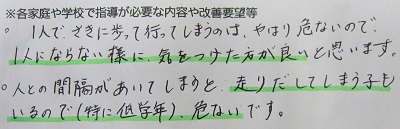 ※各家庭や学校で指導が必要な内容や改善要望等
○ 1人で、さきに歩って行ってしまうのは、やはり危ないので、
1人にならない様に、気をつけた方が良いと思います。
○ 人との間隔があいてしまうと、走りだしてしまう子も
いるので(特に低学年)、危ないです。